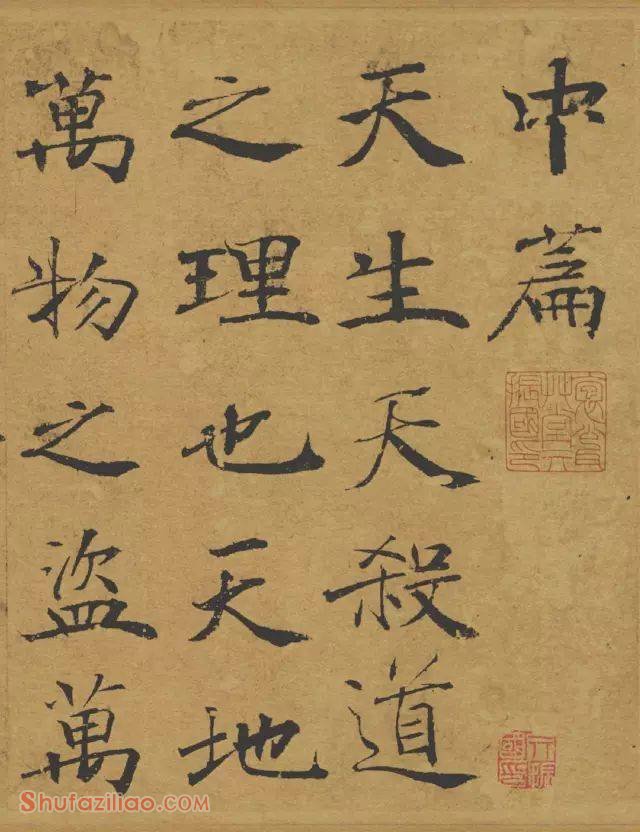 中篇
天生天殺道
之理也天地
萬物之盜萬
Shufaziliao.com